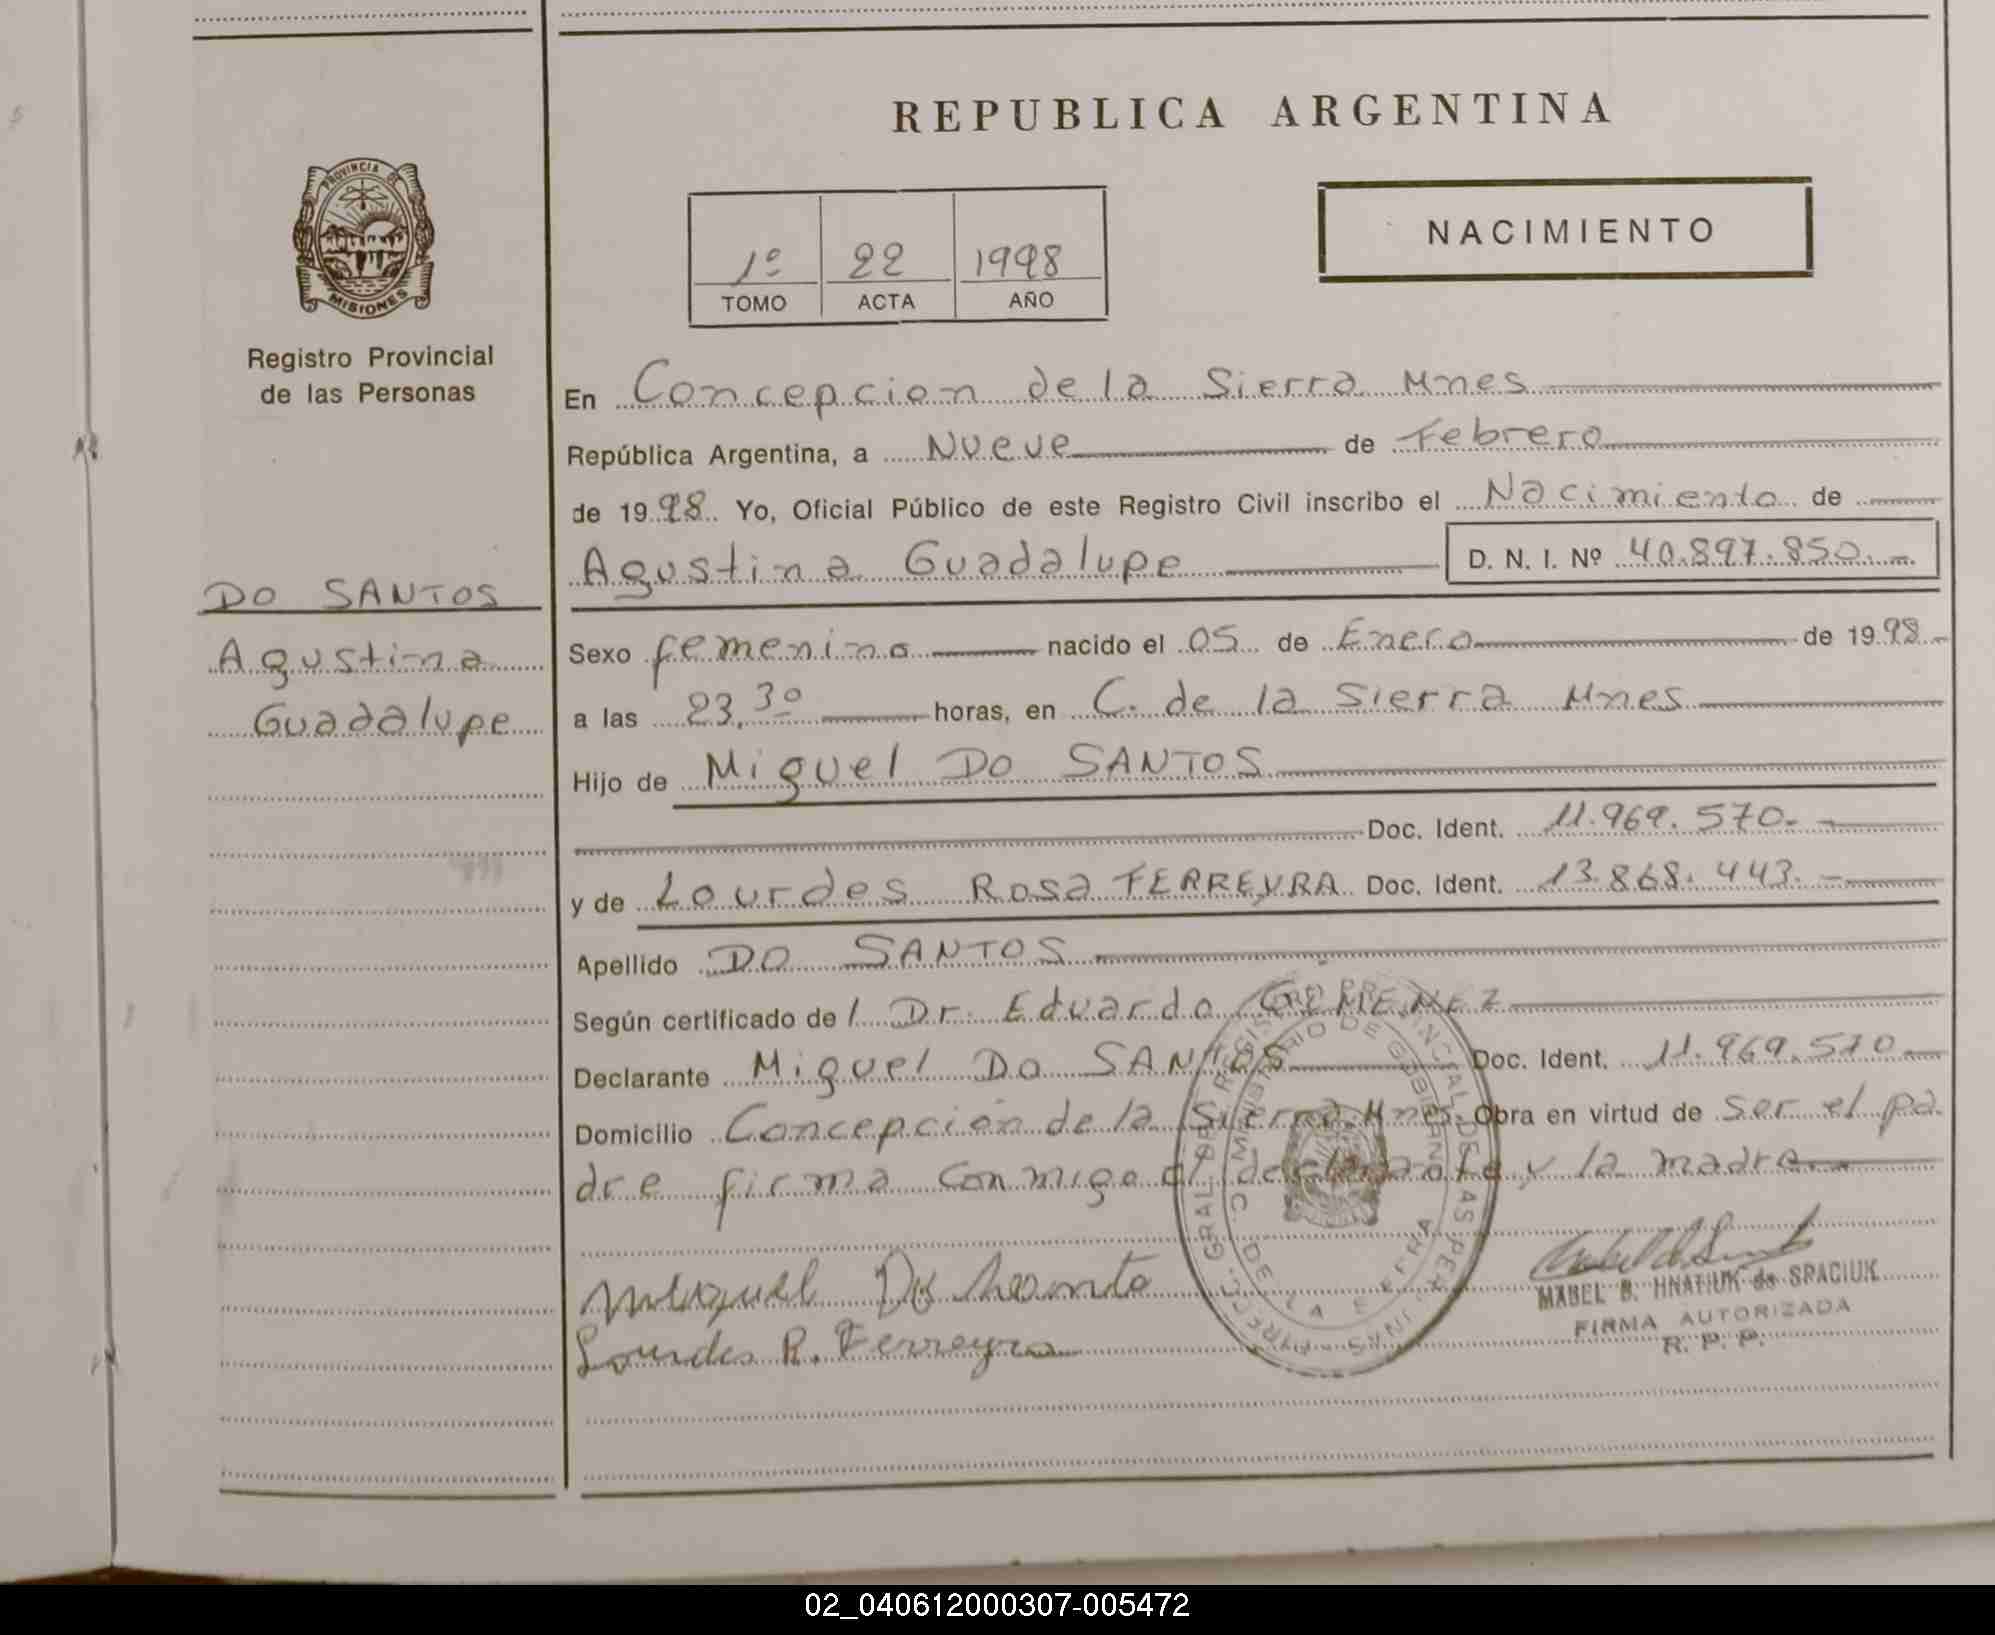 REPUBLICA ARGENTINA
PROVINCIA DE
MISIONES
Registro Provincial
de las Personas
1º 22 1998
TOMO ACTA AÑO
NACIMIENTO
En Concepcion de la Sierra Mnes
República Argentina, a Nueve de Febrero
de 1998 Yo, Oficial Público de este Registro Civil inscribo el Nacimiento de
Agustina Guadalupe D. N. I. Nº 40.897.850.-
DO SANTOS
Agustina
Guadalupe
Sexo femenino nacido el 05 de Enero de 1998-
a las 23,30 horas, en C. de la Sierra Mnes
Hijo de Miguel DO SANTOS
Doc. Ident. 11.969.570.-
y de Lourdes Rosa FERREYRA Doc. Ident. 13.868.443.-
Apellido DO SANTOS
Según certificado del Dr. Eduardo GEMENEZ
Declarante Miguel Do SANTOS Doc. Ident. 11.969.570-
Domicilio Concepción de la Sierra Mnes. Obra en virtud de Ser el pa
dre firma conmigo el declarante y la madre.-
Miguel Do
Lourdes R. Ferreyra
MABEL B. HNATIUK de SPACIUK
FIRMA AUTORIZADA
R. P. P.
02_040612000307-005472